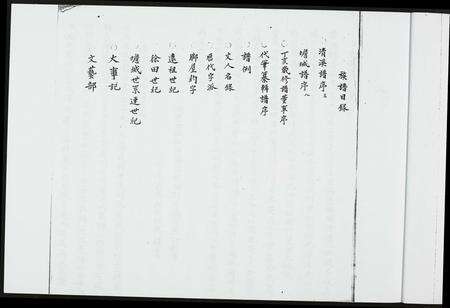 族譜目錄
清溪譜序
城譜序
丁亥歲修譜董事序
代筆纂輯譜序
譜例
文人名錄
歷代字派
鄉屋約字
遠祖世紀
徐田世紀
城世系連世紀
大事記
文藝部